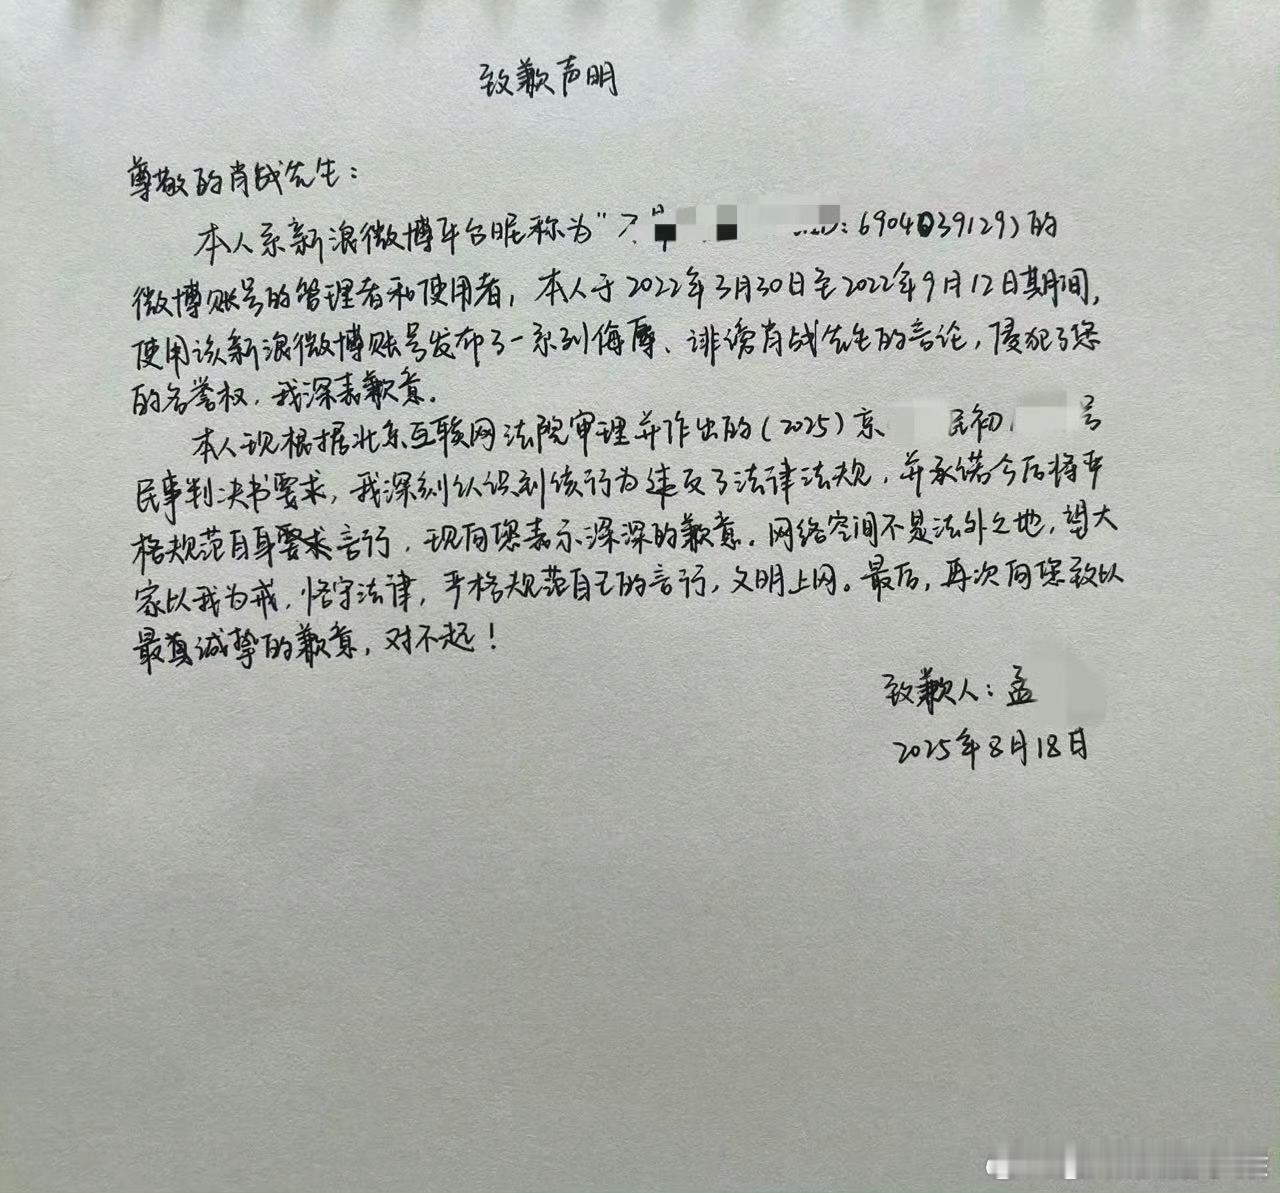 致歉声明
尊敬的肖战先生：
本人系新浪微博平台昵称为“不 ID：6904039129）的
微博账号的管理者和使用者，本人于2022年3月30日至2022年9月12日期间，
使用该新浪微博账号发布了一系列侮辱、诽谤肖战先生的言论，侵犯了您
的名誉权，我深表歉意。
本人现根据北京互联网法院审理并作出的（2025）京 民初 号
民事判决书要求，我深刻认识到该行为违反了法律法规，并承诺今后将严
格规范自身要求言行，现向您表示深深的歉意。网络空间不是法外之地，望大
家以我为戒，恪守法律，严格规范自己的言行，文明上网。最后，再次向您致以
最真诚挚的歉意，对不起！
致歉人：孟
2025年8月18日